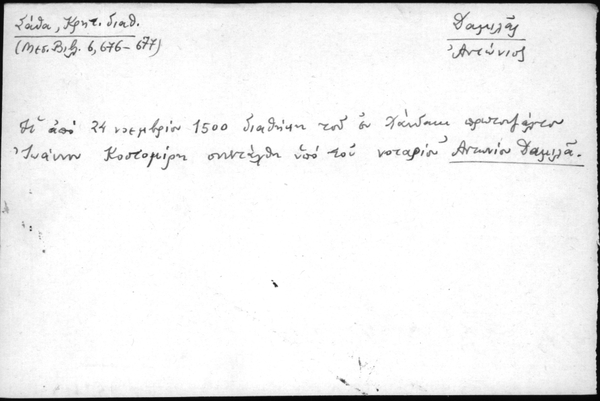 Σάθα, Κρητ. διαθ.
(Μεσ. Βιβλ. 6, 676-677)
Δαμιλᾶς
Ἀντώνιος
Ἡ ἀπό 24 νοεμβρίου 1500 διαθήκη τοῦ ἐν Χάνδακι πρωτοψάλτου
Ἰωάννου Κοστομίρη συνετάχθη ὑπό τοῦ νοταρίου Ἀντωνίου Δαμιλᾶ.